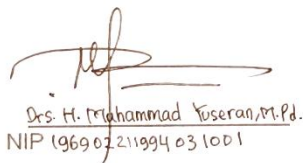 Drs. H. Muhammad Yuseran, M.Pd.
NIP 196907211994031001